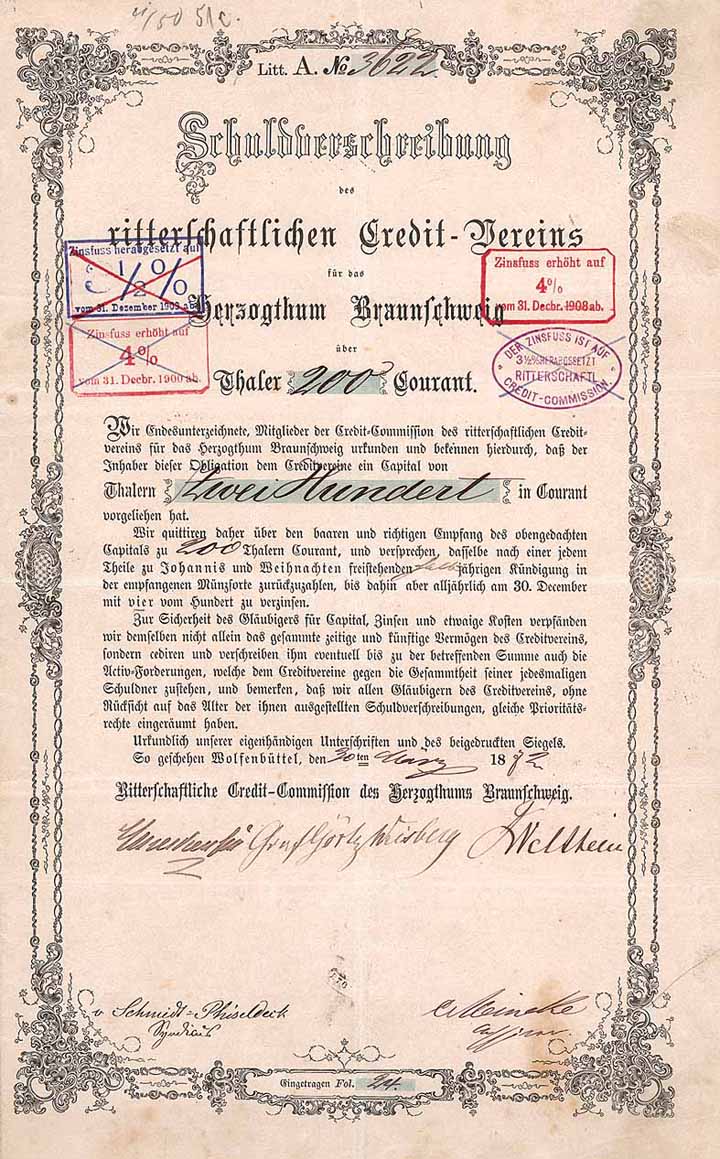 Litt. A. No 3622
Schuldverschreibung
des
ritterschaftlichen Credit-Vereins
für das
Herzogthum Braunschweig
über
Thaler 200 Courant.
Zinsfuss herabgesetzt auf
3 1/2 %
vom 31. Dezember 1903 ab.
Zinsfuss erhöht auf
4%
vom 31. Decbr. 1900 ab.
Zinsfuss erhöht auf
4%
vom 31. Decbr. 1908 ab.
DER ZINSFUSS IST AUF
3 1/2 % HERABGESETZT
RITTERSCHAFTL.
CREDIT-COMMISSION
Wir Endesunterzeichnete, Mitglieder der Credit-Commission des ritterschaftlichen Credit-
vereins für das Herzogthum Braunschweig urkunden und bekennen hierdurch, daß der
Inhaber dieser Obligation dem Creditvereine ein Capital von
Thalern Zwei Hundert in Courant
vorgeliehen hat.
Wir quittiren daher über den baaren und richtigen Empfang des obengedachten
Capitals zu 200 Thalern Courant, und versprechen, dasselbe nach einer jedem
Theile zu Johannis und Weihnachten freistehenden halbjährigen Kündigung in
der empfangenen Münzsorte zurückzuzahlen, bis dahin aber alljährlich am 30. December
mit vier vom Hundert zu verzinsen.
Zur Sicherheit des Gläubigers für Capital, Zinsen und etwaige Kosten verpfänden
wir demselben nicht allein das gesammte zeitige und künftige Vermögen des Creditvereins,
sondern cediren und verschreiben ihm eventuell bis zu der betreffenden Summe auch die
Activ-Forderungen, welche dem Creditvereine gegen die Gesammtheit seiner jedesmaligen
Schuldner zustehen, und bemerken, daß wir allen Gläubigern des Creditvereins, ohne
Rücksicht auf das Alter der ihnen ausgestellten Schuldverschreibungen, gleiche Prioritäts-
rechte eingeräumt haben.
Urkundlich unserer eigenhändigen Unterschriften und des beigedruckten Siegels.
So geschehen Wolfenbüttel, den 30ten März 1872
Ritterschaftliche Credit-Commission des Herzogthums Braunschweig.
Graf Görtz Wrisberg Veltheim
v. Schmidt-Phiseldeck
Syndicus
C. Meinecke
Eingetragen Fol. 24.